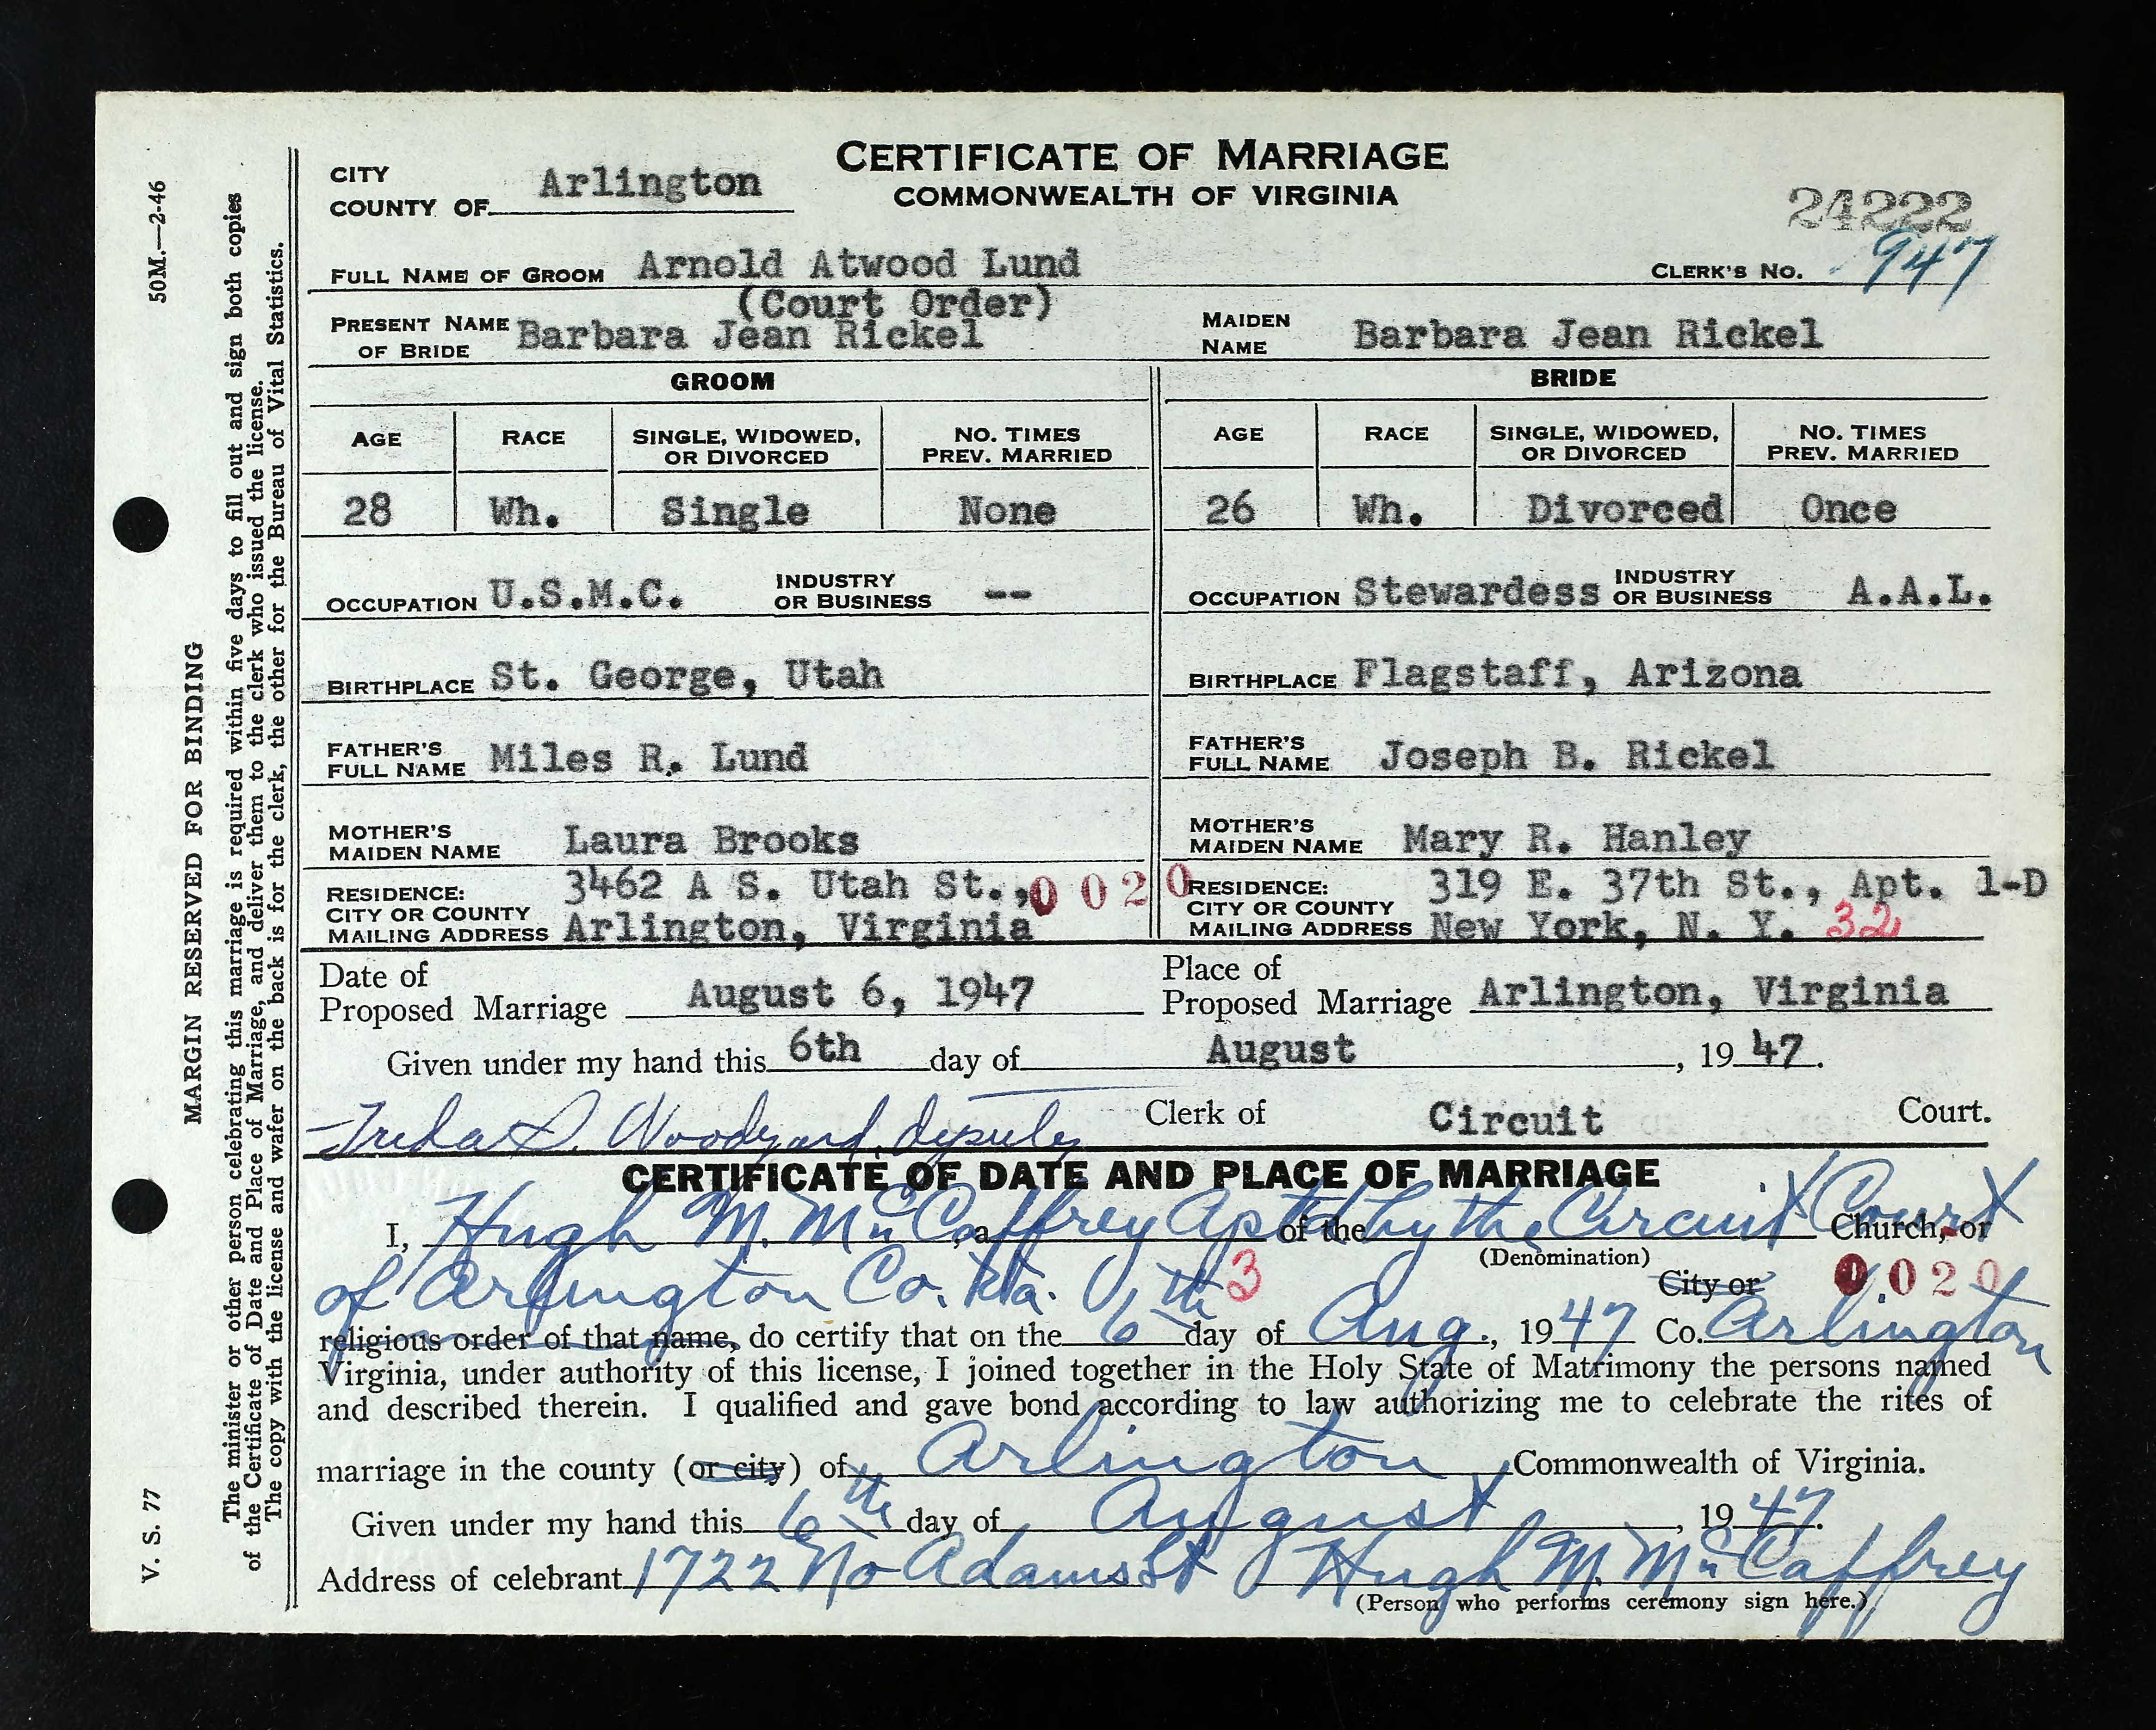 CERTIFICATE OF MARRIAGE
COMMONWEALTH OF VIRGINIA
CITY
COUNTY OF Arlington
24222
FULL NAME OF GROOM Arnold Atwood Lund CLERK'S NO. 947
(Court Order)
PRESENT NAME OF BRIDE Barbara Jean Rickel MAIDEN NAME Barbara Jean Rickel
GROOM BRIDE
AGE RACE SINGLE, WIDOWED, OR DIVORCED NO. TIMES PREV. MARRIED AGE RACE SINGLE, WIDOWED, OR DIVORCED NO. TIMES PREV. MARRIED
28 Wh. Single None 26 Wh. Divorced Once
OCCUPATION U.S.M.C. INDUSTRY OR BUSINESS -- OCCUPATION Stewardess INDUSTRY OR BUSINESS A.A.L.
BIRTHPLACE St. George, Utah BIRTHPLACE Flagstaff, Arizona
FATHER'S FULL NAME Miles R. Lund FATHER'S FULL NAME Joseph B. Rickel
MOTHER'S MAIDEN NAME Laura Brooks MOTHER'S MAIDEN NAME Mary R. Hanley
RESIDENCE: 3462 A S. Utah St., 0 0 2 0 RESIDENCE: 319 E. 37th St., Apt. 1-D
CITY OR COUNTY MAILING ADDRESS Arlington, Virginia CITY OR COUNTY MAILING ADDRESS New York, N. Y. 32
Date of Proposed Marriage August 6, 1947 Place of Proposed Marriage Arlington, Virginia
Given under my hand this 6th day of August, 1947.
D. Woodyard, deputy Clerk of Circuit Court.
CERTIFICATE OF DATE AND PLACE OF MARRIAGE
I, Hugh M. McCaffrey, a Aptd of the by the Circuit Court Church, or
(Denomination)
of Arlington Co. Va. 3 City or 0 0 2 0
religious order of that name, do certify that on the 6th day of Aug., 1947 Co. Arlington
Virginia, under authority of this license, I joined together in the Holy State of Matrimony the persons named
and described therein. I qualified and gave bond according to law authorizing me to celebrate the rites of
marriage in the county (or city) of Arlington, Commonwealth of Virginia.
Given under my hand this 6th day of August, 1947.
Address of celebrant 1722 No Adams St Hugh M. McCaffrey
(Person who performs ceremony sign here.)
V. S. 77 MARGIN RESERVED FOR BINDING 50M.—2-46
The minister or other person celebrating this marriage is required within five days to fill out and sign both copies
of the Certificate of Date and Place of Marriage, and deliver them to the clerk who issued the license.
The copy with the license and wafer on the back is for the clerk, the other for the Bureau of Vital Statistics.